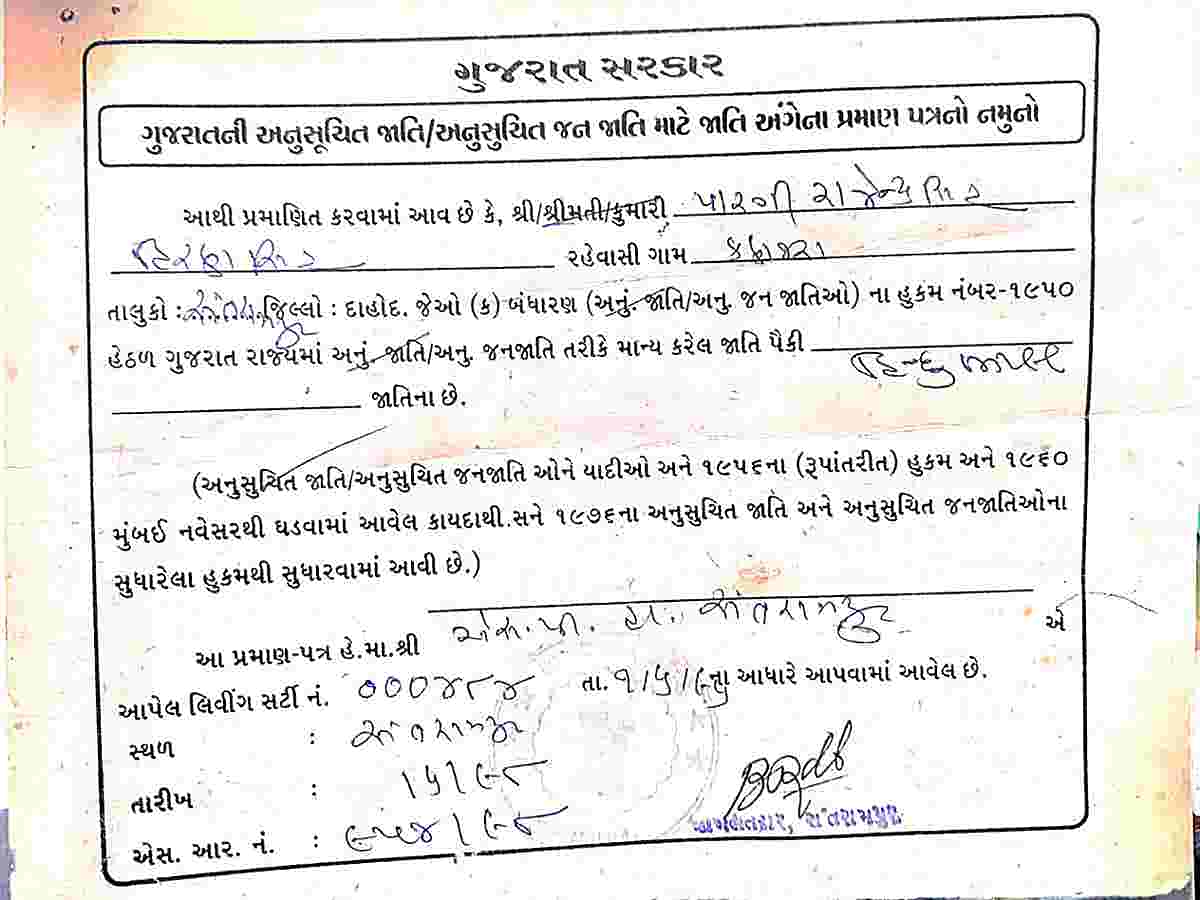 ગુજરાત સરકાર
ગુજરાતની અનુસૂચિત જાતિ/અનુસુચિત જન જાતિ માટે જાતિ અંગેના પ્રમાણ પત્રનો નમુનો
આથી પ્રમાણિત કરવામાં આવ છે કે, શ્રી/શ્રીમતી/કુમારી પારગી રાજેન્દ્રસિંહ
રહેવાસી ગામ
તાલુકો : સંતરામપુર જિલ્લો : દાહોદ. જેઓ (ક) બંધારણ (અનું. જાતિ/અનુ. જન જાતિઓ) ના હુકમ નંબર-૧૯૫૦
હેઠળ ગુજરાત રાજ્યમાં અનું. જાતિ/અનુ. જનજાતિ તરીકે માન્ય કરેલ જાતિ પૈકી
હિન્દુ ભીલ
જાતિના છે.
(અનુસુચિત જાતિ/અનુસુચિત જનજાતિ ઓને યાદીઓ અને ૧૯૫૬ના (રૂપાંતરીત) હુકમ અને ૧૯૬૦
મુંબઈ નવેસરથી ઘડવામાં આવેલ કાયદાથી.સને ૧૯૭૬ના અનુસુચિત જાતિ અને અનુસુચિત જનજાતિઓના
સુધારેલા હુકમથી સુધારવામાં આવી છે.)
આ પ્રમાણ-પત્ર હે.મા.શ્રી એસ.પી. હા. સંતરામપુર એ
આપેલ લિવીંગ સર્ટી નં. ૦૦૦૪૮૪ તા. ના આધારે આપવામાં આવેલ છે.
સ્થળ : સંતરામપુર
તારીખ :
એસ. આર. નં. : ૯૫૪/૯૮
મામલતદાર, સંતરામપુર